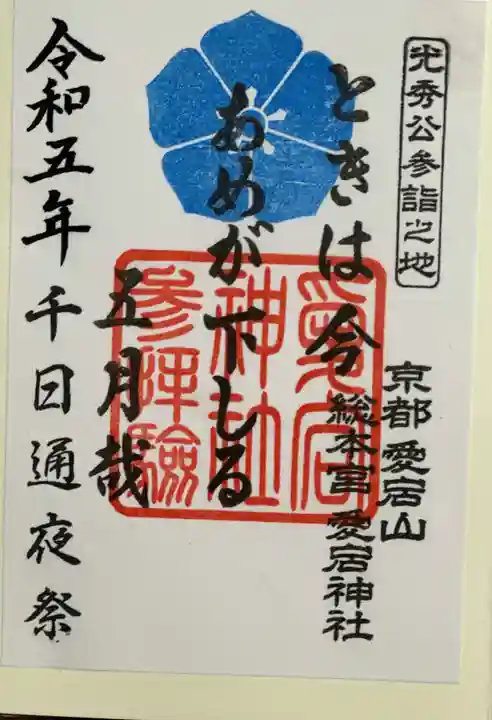 光秀公参詣之地
京都 愛宕山
総本宮 愛宕神社
ときは今
あめが下しる
五月哉
愛宕
神社
参拝験
令和五年 千日通夜祭